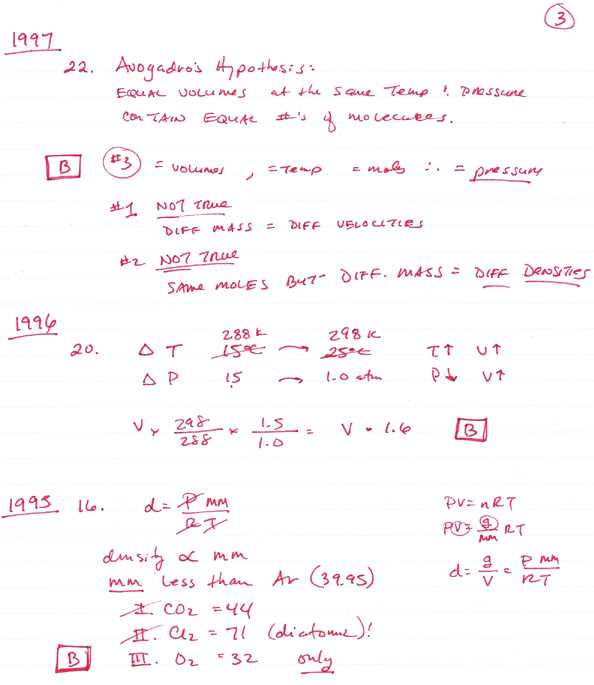 3
1997
22. Avogadro's Hypothesis:
EQUAL VOLUMES at the same Temp & pressure
CONTAIN EQUAL #'s of molecules.
B #3 = volumes, = Temp = moles ∴ = pressure
#1 NOT TRUE
DIFF MASS = DIFF VELOCITIES
#2 NOT TRUE
SAME MOLES BUT DIFF. MASS = DIFF DENSITIES
1996
288 K 298 K
20. Δ T 15°C → 25°C T↑ V↑
Δ P 1.5 → 1.0 atm P↓ V↑
V × 298/288 × 1.5/1.0 = V • 1.6 B
1995 16. d = P MM / RT PV = nRT
PV = g/MM RT
density ∝ mm d = g/V = P MM / RT
mm less than Ar (39.95)
I. CO2 = 44
II. Cl2 = 71 (diatomic)!
B III. O2 = 32 only